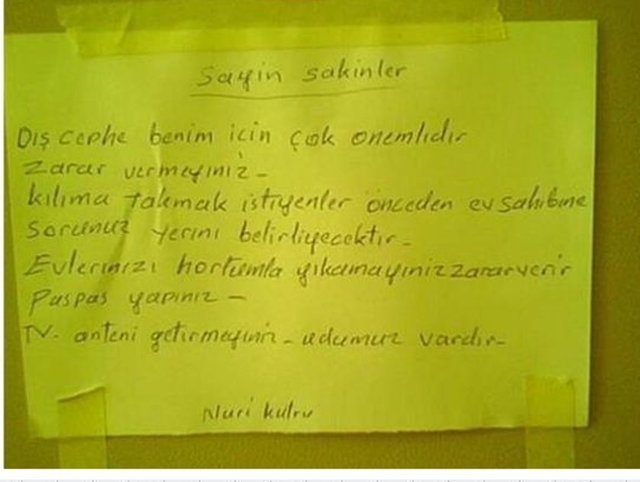 Sayin sakinler
Dış cephe benim için çok onemlidir
Zarar vermeyiniz -
kılıma takmak istiyenler önceden ev sahıbıne
Sorunuz yerını belirliyecektir -
Evlerınızı hortumla yıkamayiniz zarar verir
Paspas yapınız -
TV. anteni getirmeyınız - udumuz vardır -
Nuri